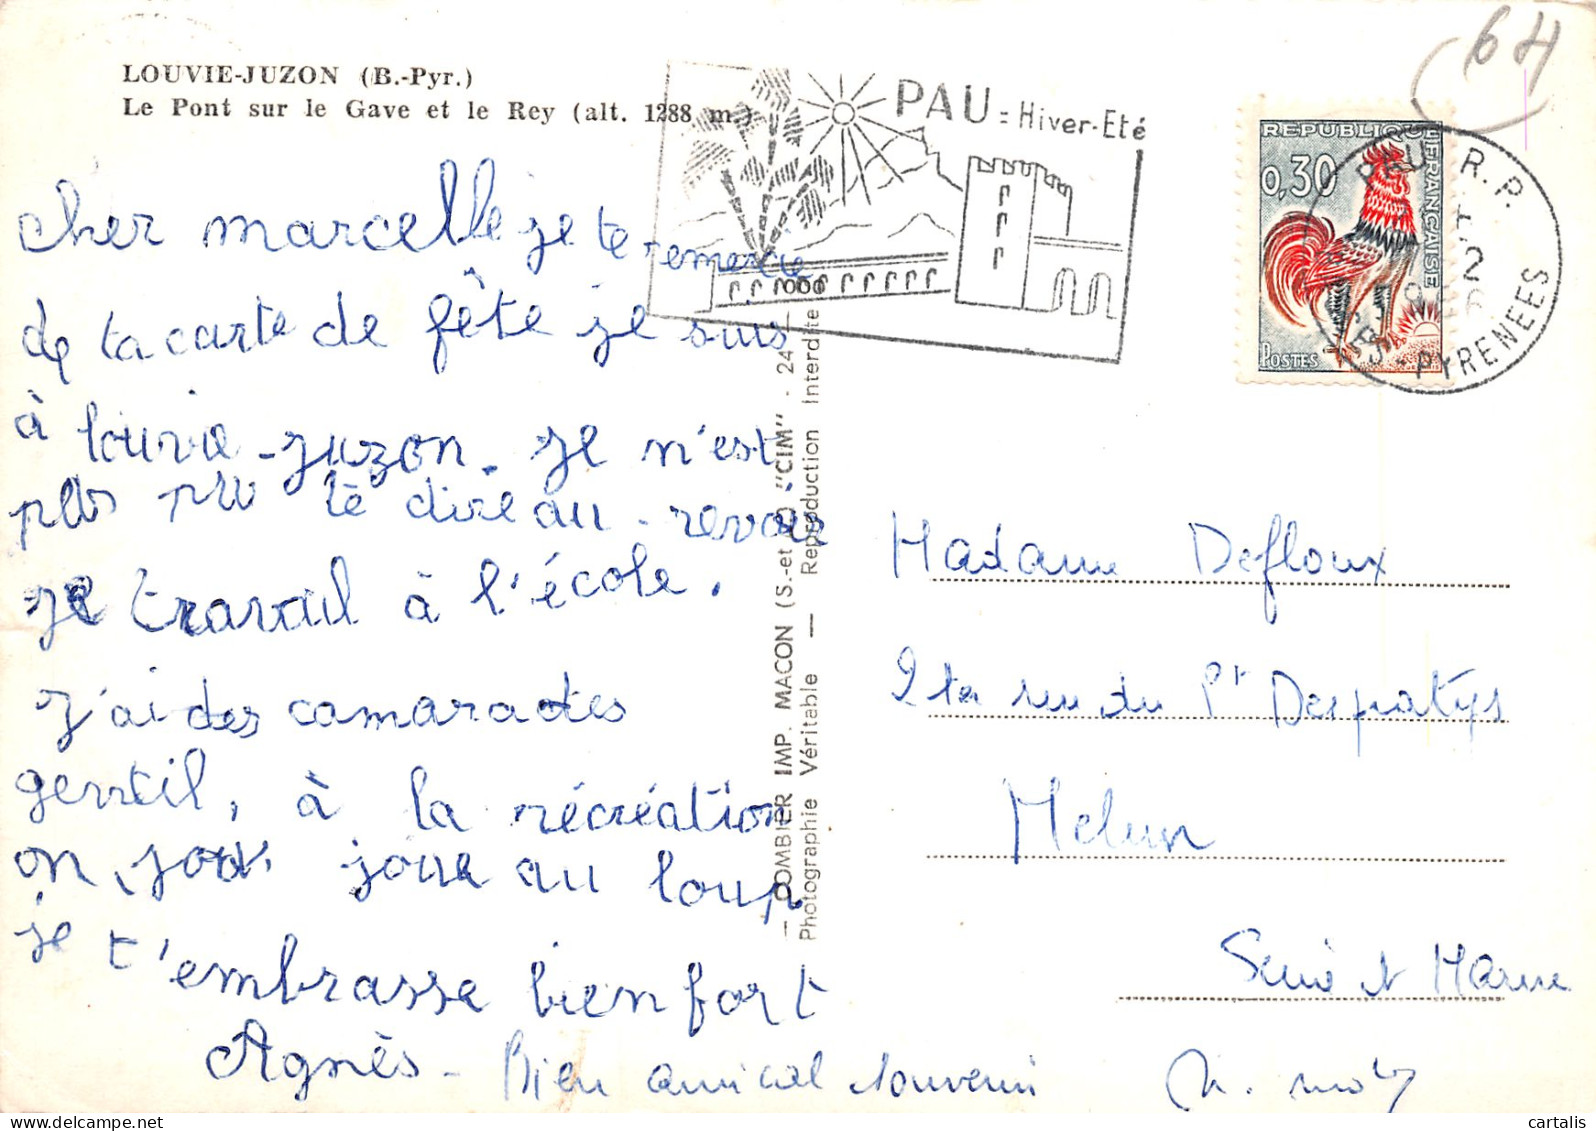 64
LOUVIE-JUZON (B.-Pyr.)
Le Pont sur le Gave et le Rey (alt. 1288 m.)
PAU = Hiver-Eté
REPUBLIQUE FRANÇAISE
0,30
POSTES
PAU R.P.
PYRENEES
cher marcelle je te remercie
de ta carte de fête je suis
à louvie-juzon. je n'est
plus pu te dire au-revoir
je travail à l'école.
j'ai des camarades
gentil, à la récréation
on joue au loup
je t'embrasse bien fort
Agnès - Bien amical souvenir
— COMBIER IMP. MACON (S.-et-L.) "CIM" - 24
Photographie Véritable — Reproduction Interdite
Madame Defloux
rue du Pt Despatys
Melun
Seine et Marne
cartalis